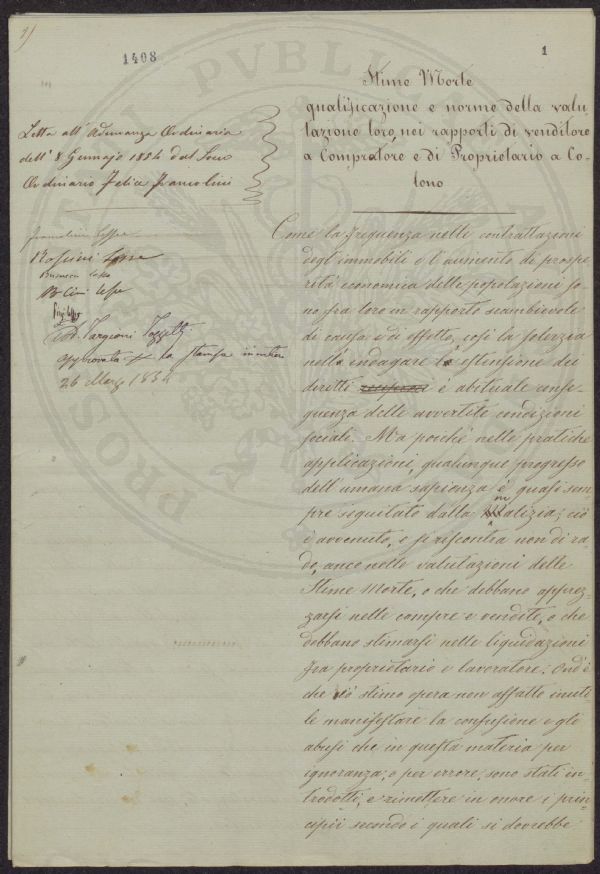 1408
1
Stime Morte
qualificazione e norme della valu-
tazione loro, nei rapporti di venditore
a Compratore e di Proprietario a Co-
lono
Letta all' Adunanza Ordinaria
dell' 8 Gennajo 1854 dal Socio
Ordinario Felice Francolini
lesse
Rossini lesse
lesse
lesse
Targioni Tozzetti
approvata la stampa
26 Marz 1854
Come la frequenza nelle contrattazioni
degl' immobili e l' aumento di prospe-
rità economica delle popolazioni so-
no fra loro in rapporto scambievole
di causa e di effetto, così la solerzia
nell' indagare la estensione dei
diritti è abituale conse-
guenza delle avvertite condizioni
sociali. Ma poichè nelle pratiche
applicazioni, qualunque progresso
dell' umana sapienza è quasi sem-
pre seguitato dalla malizia; ciò
è avvenuto, e si riscontra non di ra-
do, anco nelle valutazioni delle
Stime Morte, o che debbano apprez-
zarsi nelle compre e vendite, o che
debbano stimarsi nelle liquidazioni
fra proprietario e lavoratore: Ond' è
che io stimo opera non affatto inuti-
le manifestare la confusione e gli
abusi che in questa materia per
ignoranza, o per errore, sono stati in-
trodotti, e rimettere in onore i prin-
cipii secondo i quali si dovrebbe
PROSPERITATI PUBLICAE